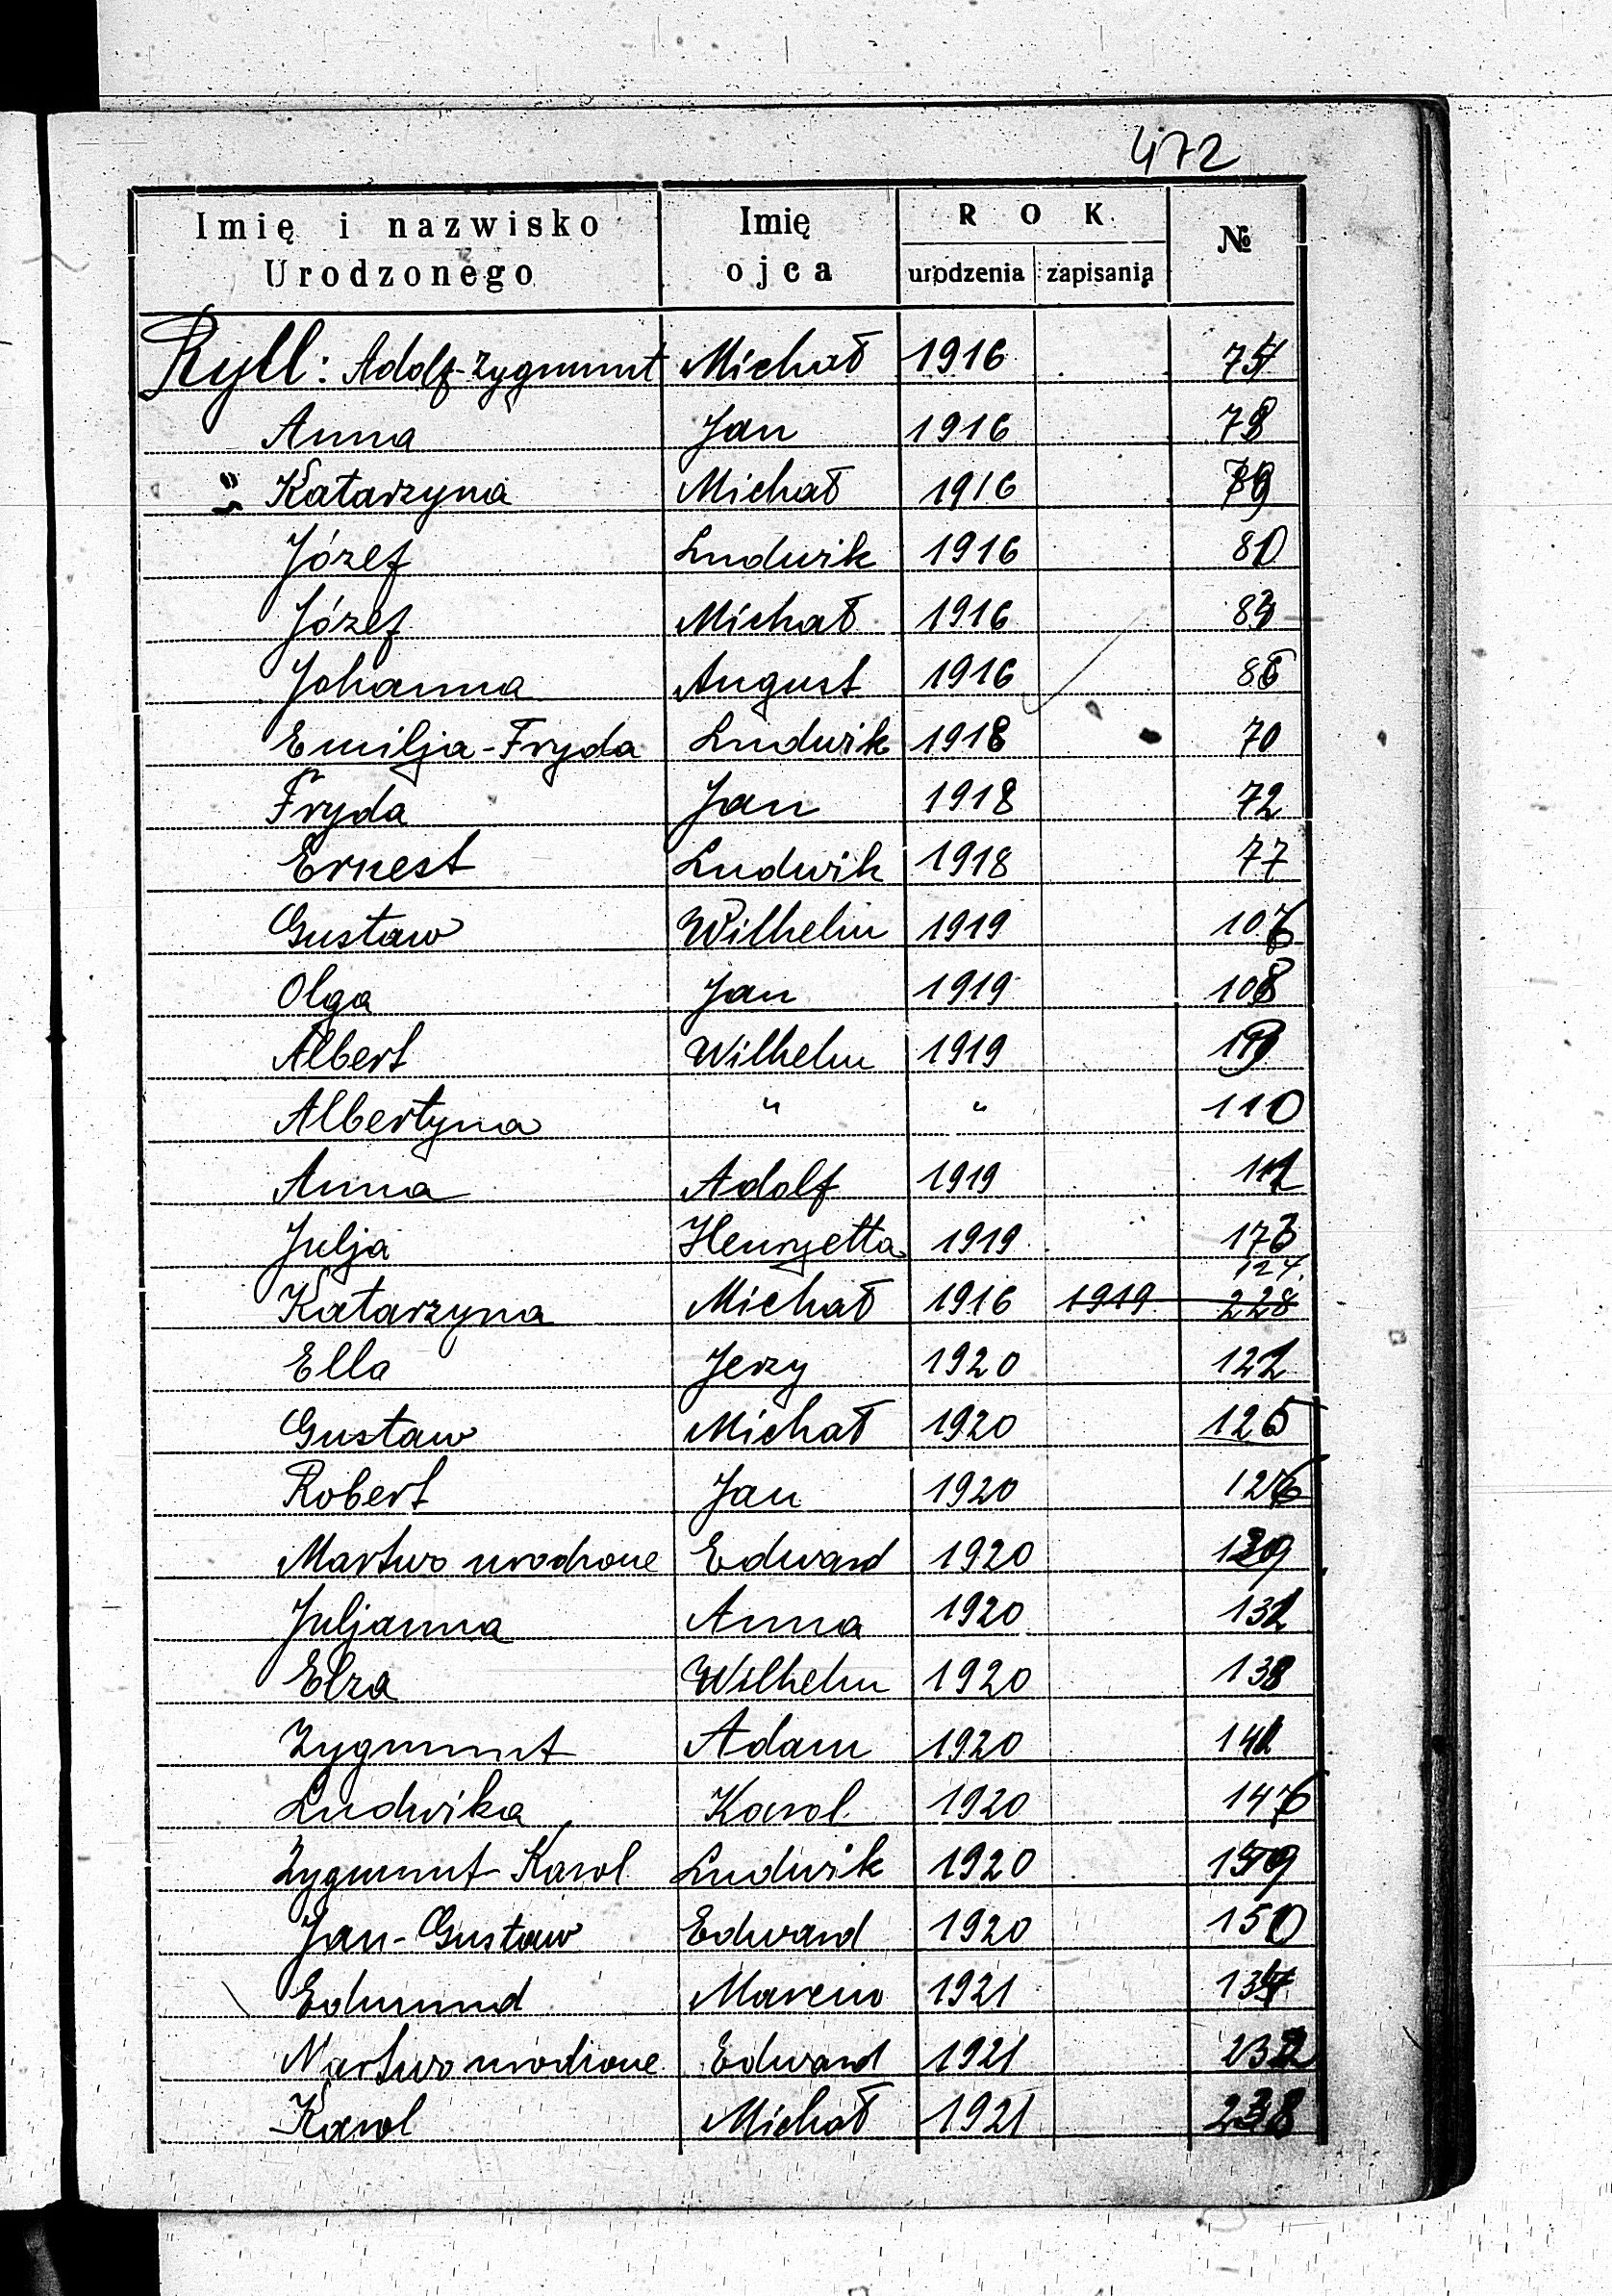 472
Imię i nazwisko Urodzonego Imię ojca ROK urodzenia zapisania №
Ryll: Adolf-Zygmunt Michał 1916
Anna Jan 1916 78
" Katarzyna Michał 1916
Józef Ludwik 1916
Józef Michał 1916
Johanna August 1916
Emilja-Fryda Ludwik 1918 70
Fryda Jan 1918 72
Ernest Ludwik 1918 77
Gustaw Wilhelm 1919
Olga Jan 1919 108
Albert Wilhelm 1919
Albertyna " " 110
Anna Adolf 1919
Julja Henryetta 1919
Katarzyna Michał 1916 1919 124 228
Ella Jerzy 1920 122
Gustaw Michał 1920 125
Robert Jan 1920 126
Martwo urodzone Edward 1920
Juljanna Anna 1920 132
Elza Wilhelm 1920 138
Zygmunt Adam 1920
Ludwika Karol 1920 146
Zygmunt Karol Ludwik 1920
Jan-Gustaw Edward 1920 150
Edmund Marcin 1921
Martwo urodzone Edward 1921 232
Karol Michał 1921 238